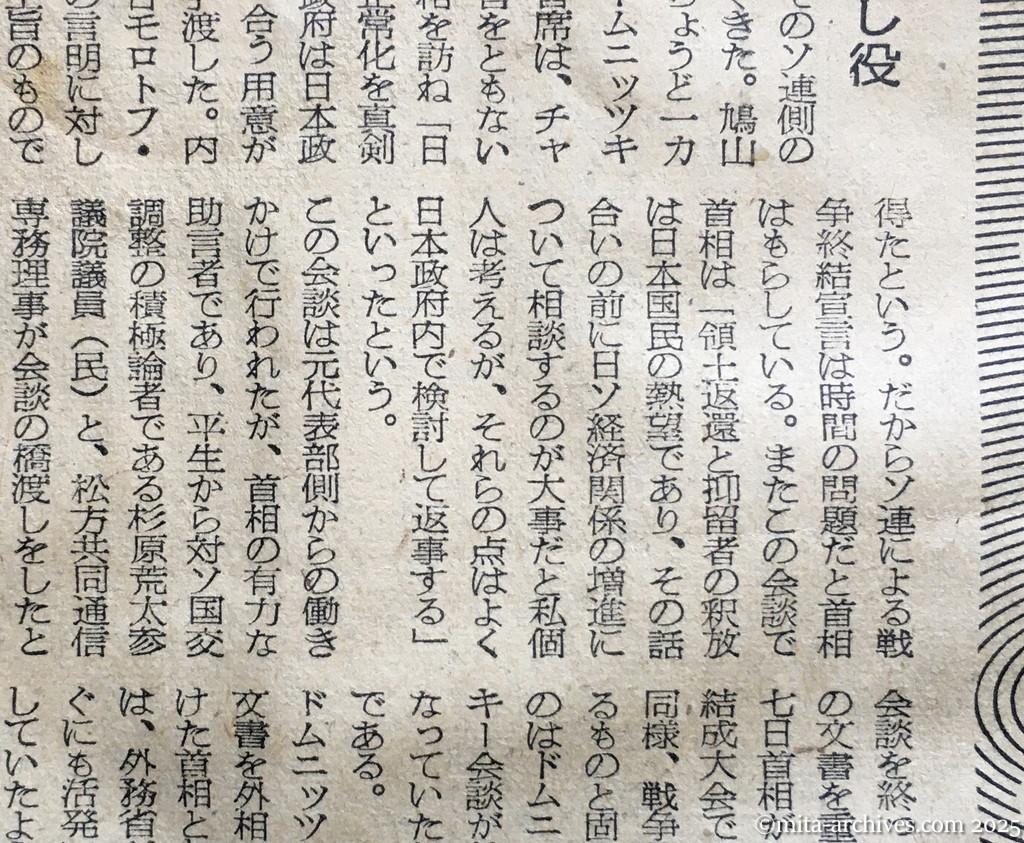 し役
そのソ連側の
てきた。鳩山
ちょうど一カ
ドムニッツキ
首席は、チャ
書をともない
相を訪ね「日
正常化を真剣
政府は日本政
合う用意が
手渡した。内
日モロトフ・
の言明に対し
主旨のもので
得たという。だからソ連による戦
争終結宣言は時間の問題だと首相
はもらしている。またこの会談で
首相は「領土返還と抑留者の釈放
は日本国民の熱望であり、その話
合いの前に日ソ経済関係の増進に
ついて相談するのが大事だと私個
人は考えるが、それらの点はよく
日本政府内で検討して返事する」
といったという。
この会談は元代表部側からの働き
かけで行われたが、首相の有力な
助言者であり、平生から対ソ国交
調整の積極論者である杉原荒太参
議院議員（民）と、松方共同通信
専務理事が会談の橋渡しをしたと
会談を終っ
の文書を重
七日首相が
結成大会で
同様、戦争
るものと固
のはドムニ
キー会談が
なっていた
である。
ドムニッツ
文書を外相
けた首相と
は、外務省
ぐにも活発
していたよ
©mita-archives.com 2025